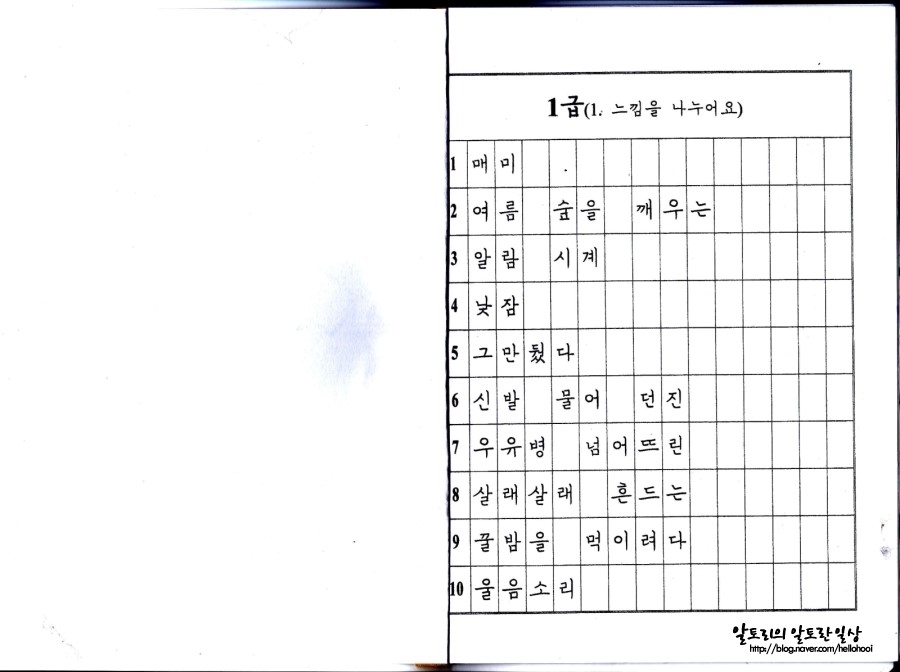 1급(1. 느낌을 나누어요)
1 매미
2 여름 숲을 깨우는
3 알람 시계
4 낮잠
5 그만뒀다
6 신발 물어 던진
7 우유병 넘어뜨린
8 살래살래 흔드는
9 꿀밤을 먹이려다
10 울음소리
알토리의 알토란일상
http://blog.naver.com/hellohooi